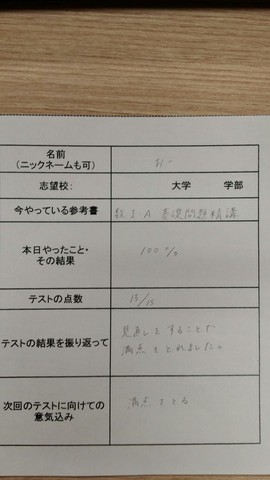 名前
(ニックネームも可)
おー
志望校:
大学 学部
今やっている参考書
数ⅠA 基礎問題精講
本日やったこと・
その結果
100%
テストの点数
15/15
テストの結果を振り返って
見直しをすることで
満点をとれました。
次回のテストに向けての
意気込み
満点をとる